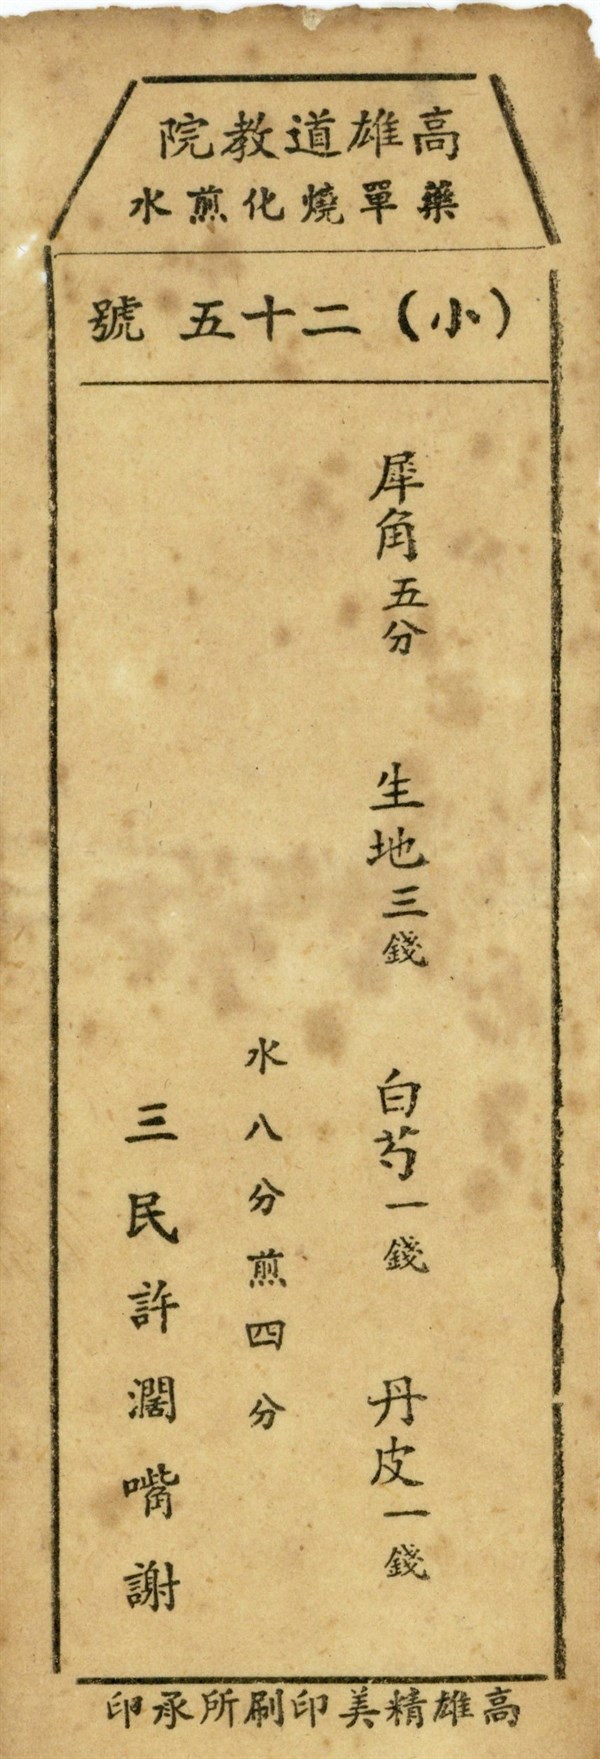 高雄道教院
藥單燒化煎水
（小）二十五 號
犀角五分 生地三錢 白芍一錢 丹皮一錢
水八分煎四分
三民許濶嘴謝
高雄精美印刷所承印